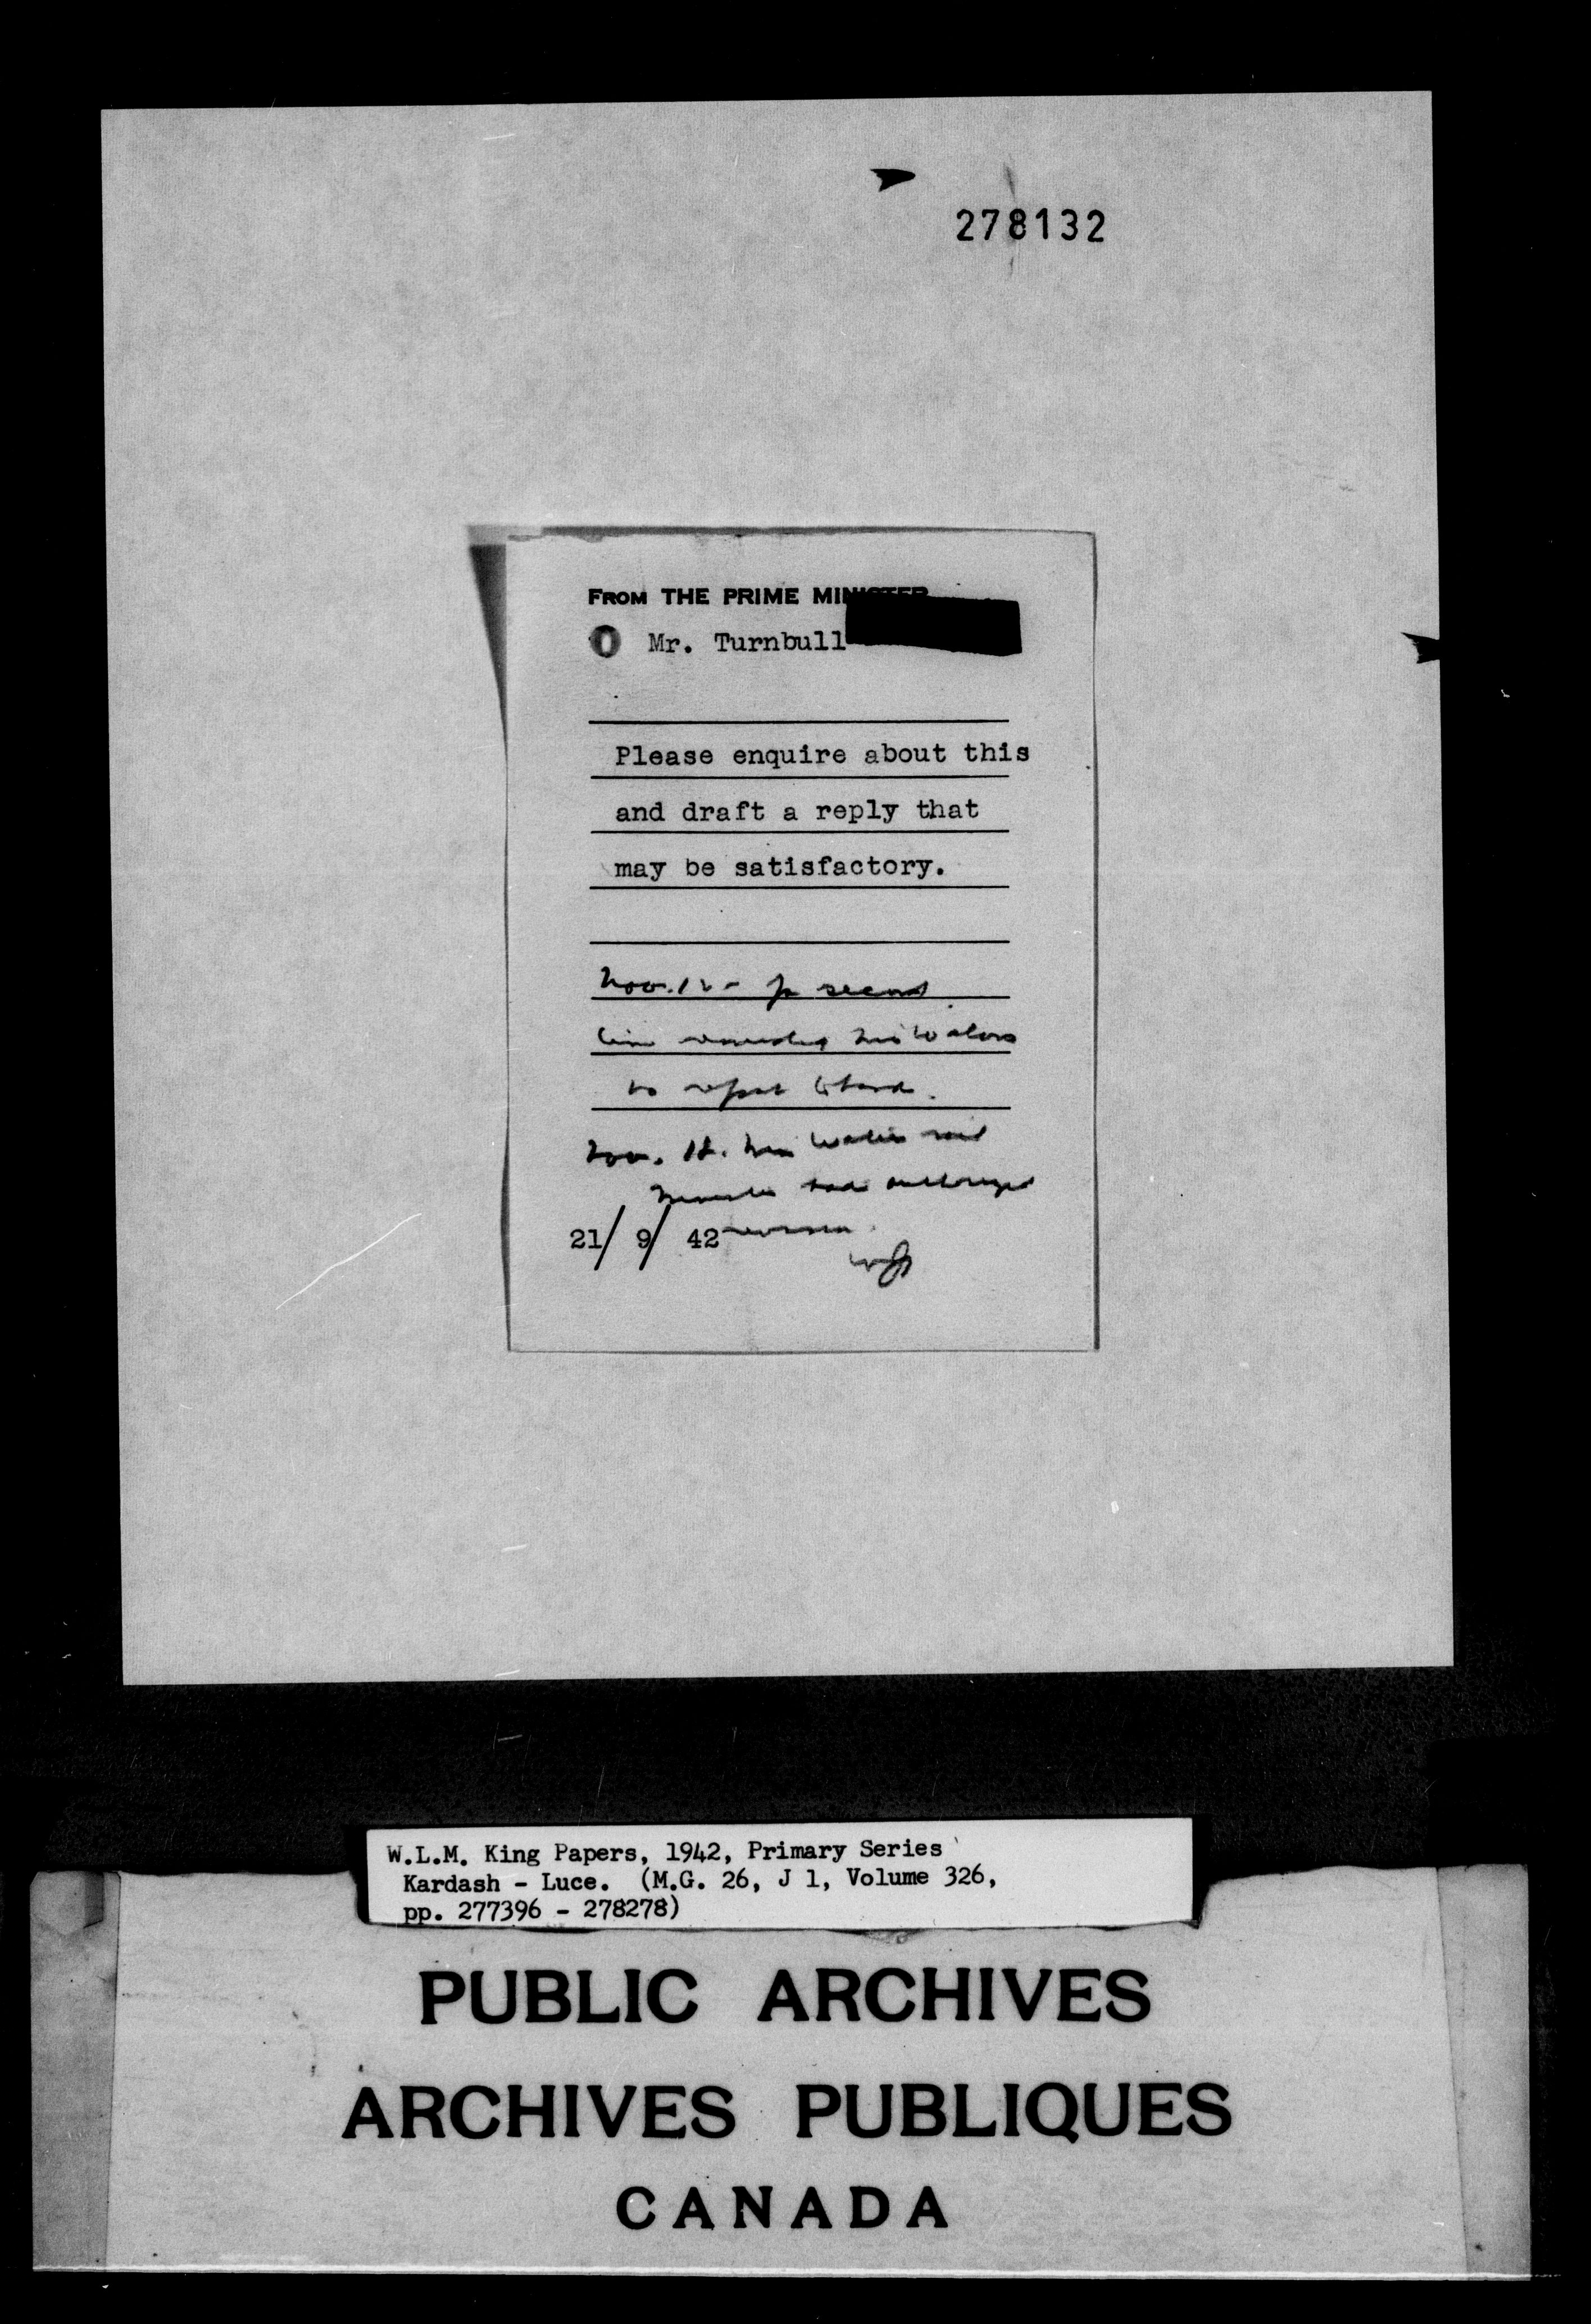 278132
FROM THE PRIME MINISTER
Mr. Turnbull
Please enquire about this
and draft a reply that
may be satisfactory.
Nov. 12 - for second
time
to report
Nov. Miss said
Minister had
21/ 9/ 42
W.L.M. King Papers, 1942, Primary Series
Kardash - Luce. (M.G. 26, J 1, Volume 326,
pp. 277396 - 278278)
PUBLIC ARCHIVES
ARCHIVES PUBLIQUES
CANADA